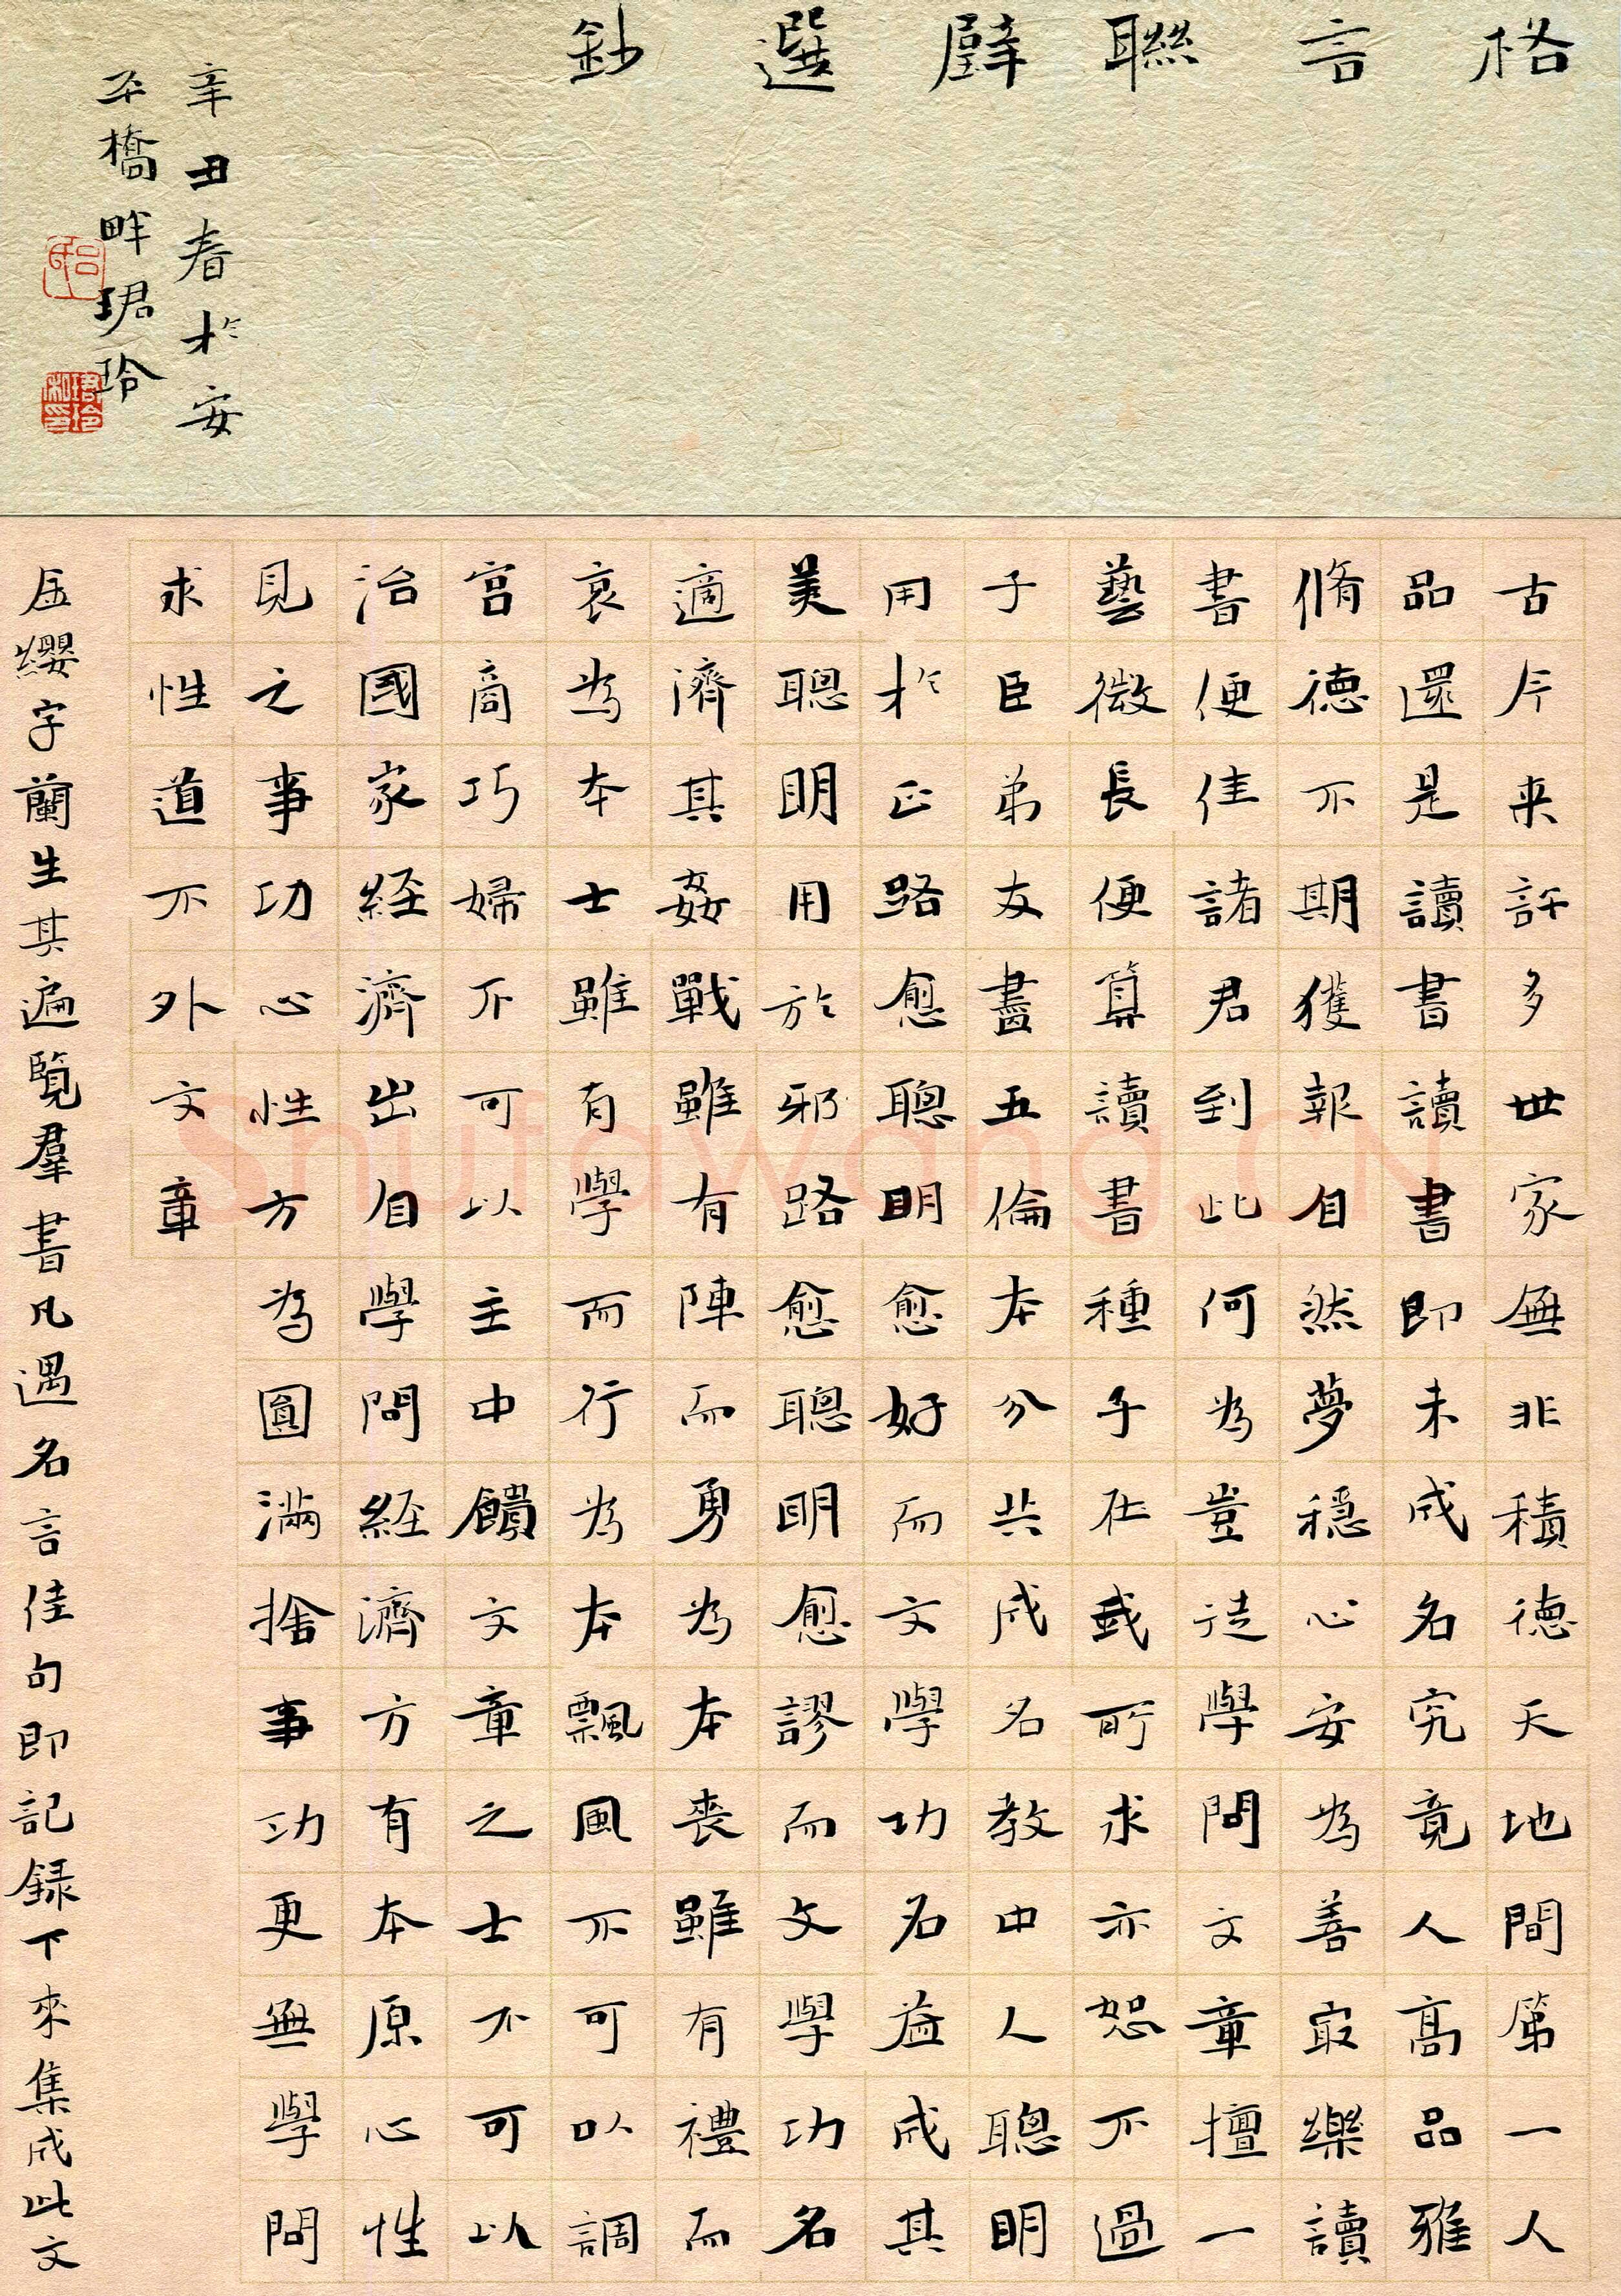 格言聯璧選鈔
古今来許多世家無非積德天地間第一人
品還是讀書讀書即未成名究竟人高品雅
脩德不期獲報自然夢穩心安為善最樂讀
書便佳諸君到此何為豈徒學問文章擅一
藝微長便算讀書種子在我所求亦恕不過
子臣弟友盡五倫本分共成名教中人聰明
用於正路愈聰明愈好而文學功名益成其
美聰明用於邪路愈聰明愈謬而文學功名
適濟其姦戰雖有陣而勇為本喪雖有禮而
哀為本士雖有學而行為本飄風不可以調
宮商巧婦不可以主中饋文章之士不可以
治國家経濟出自學問経濟方有本原心性
見之事功心性方為圓滿捨事功更無學問
求性道不外文章
金纓字蘭生其遍覽羣書凡遇名言佳句即記録下來集成此文
辛丑春於安
平橋畔珺玲
珺玲私印
Shufawang.CN